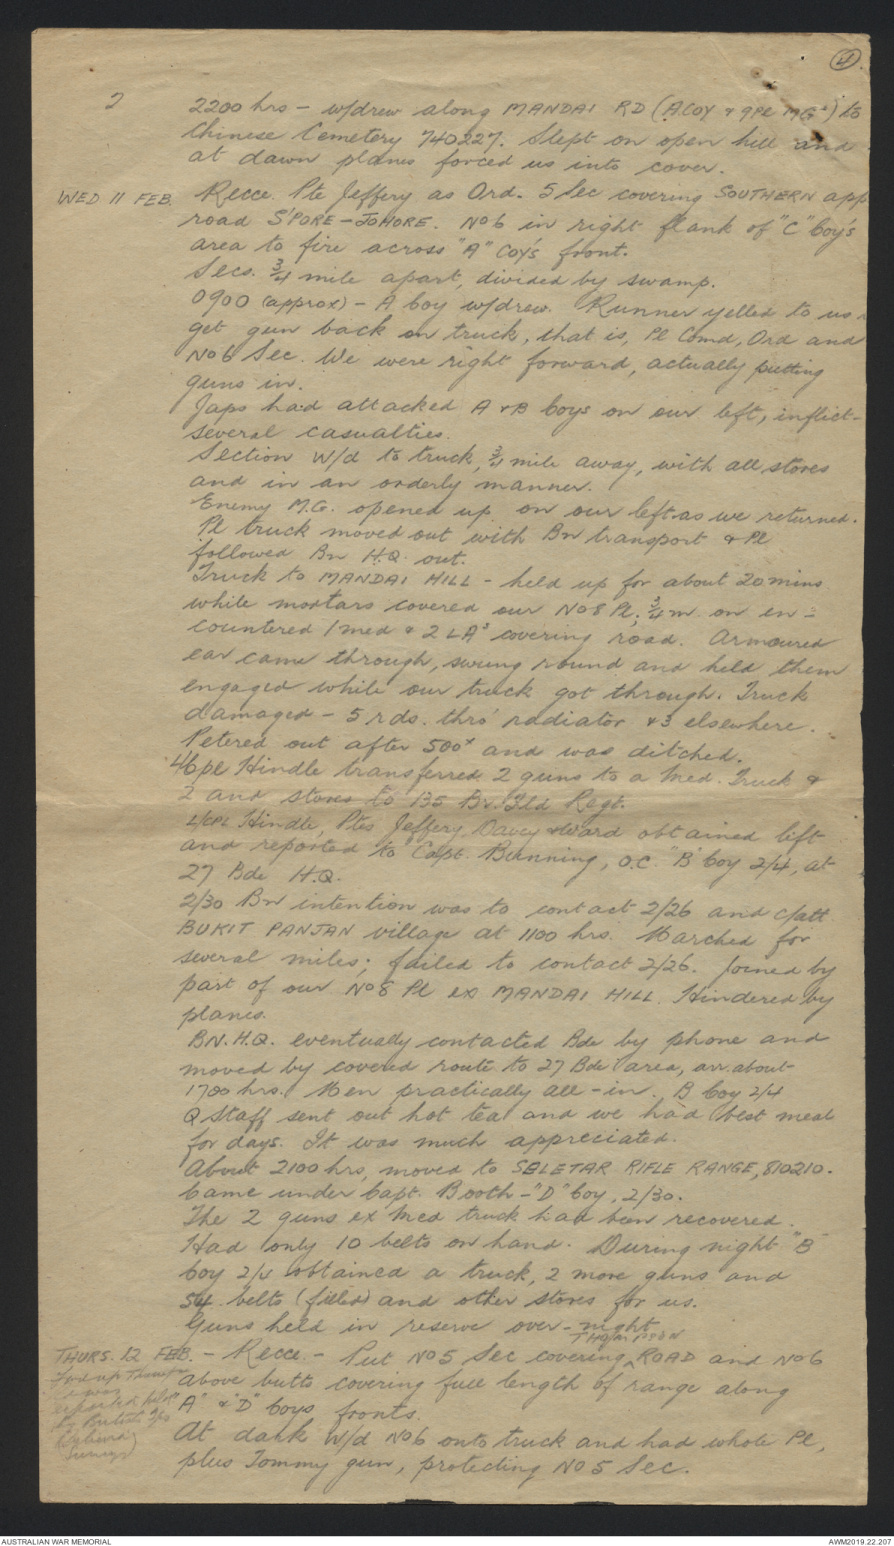 4
2
2200 hrs – w/drew along MANDAI RD (A COY & 9 PL MGs) to
Chinese Cemetery 740227. Slept on open hill and
at dawn planes forced us into cover.
WED 11 FEB. Recce. Pte Jeffery as Ord. 5 Sec covering SOUTHERN app
road S'PORE – JOHORE. No 6 in right flank of "C" Coy's
area to fire across "A" Coy's front.
Secs. 3/4 mile apart, divided by swamp.
0900 (approx) – A Coy w/drew. Runner yelled to us
get gun back on truck, that is, Pl Comd, Ord and
No 6 Sec. We were right forward, actually putting
guns in.
Japs had attacked A & B Coys on our left, inflict-
several casualties.
Section w/d to truck, 3/4 mile away, with all stores
and in an orderly manner.
Enemy M.G. opened up on our left as we returned.
Pl truck moved out with Bn transport & Pl
followed Bn H.Q. out.
Truck to MANDAI HILL – held up for about 20 mins
while mortars covered our No 8 Pl; 3/4 m. on en-
countered 1 med & 2 LAs covering road. Armoured
car came through, swung round and held them
engaged while our truck got through. Truck
damaged – 5 rds. thro' radiator & 3 elsewhere.
Petered out after 500x and was ditched.
Hindle transferred 2 guns to a Med. Truck &
2 and stores to 135 Br. Fld Regt.
L/CPL Hindle, Ptes Jeffery, Davey & Ward obtained lift
and reported to Capt. Bunning, O.C. "B" Coy 2/4, at
27 Bde H.Q.
2/30 Bn intention was to contact 2/26 and c/att
BUKIT PANJAN village at 1100 hrs. Marched for
several miles; failed to contact 2/26. Joined by
part of our No 8 Pl ex MANDAI HILL. Hindered by
planes.
BN. H.Q. eventually contacted Bde by phone and
moved by covered route to 27 Bde area, arr. about
1700 hrs. Men practically all-in. B Coy 2/4
Q Staff sent out hot tea and we had best meal
for days. It was much appreciated.
About 2100 hrs, moved to SELETAR RIFLE RANGE, 810210.
Came under Capt. Booth – "D" Coy, 2/30.
The 2 guns ex Med truck had been recovered.
Had only 10 belts on hand. During night "B"
Coy 2/4 obtained a truck, 2 more guns and
54 belts (filled) and other stores for us.
Guns held in reserve over-night.
THURS. 12 FEB. – Recce. – Put No 5 Sec covering THOMPSON ROAD and No 6
above butts covering full length of range along
"A" & "D" Coys fronts.
At dark w/d No 6 onto truck and had whole Pl,
plus Tommy gun, protecting No 5 Sec.
was
reported held
by British
AUSTRALIAN WAR MEMORIAL
AWM2019.22.207